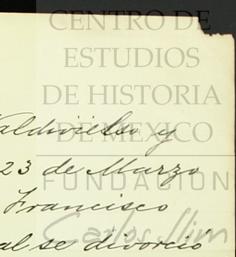 CENTRO DE
ESTUDIOS
DE HISTORIA
DE MEXICO
Valdivielso y
23 de Marzo
FUNDACION
Francisco
Carlos Slim
al se divorció